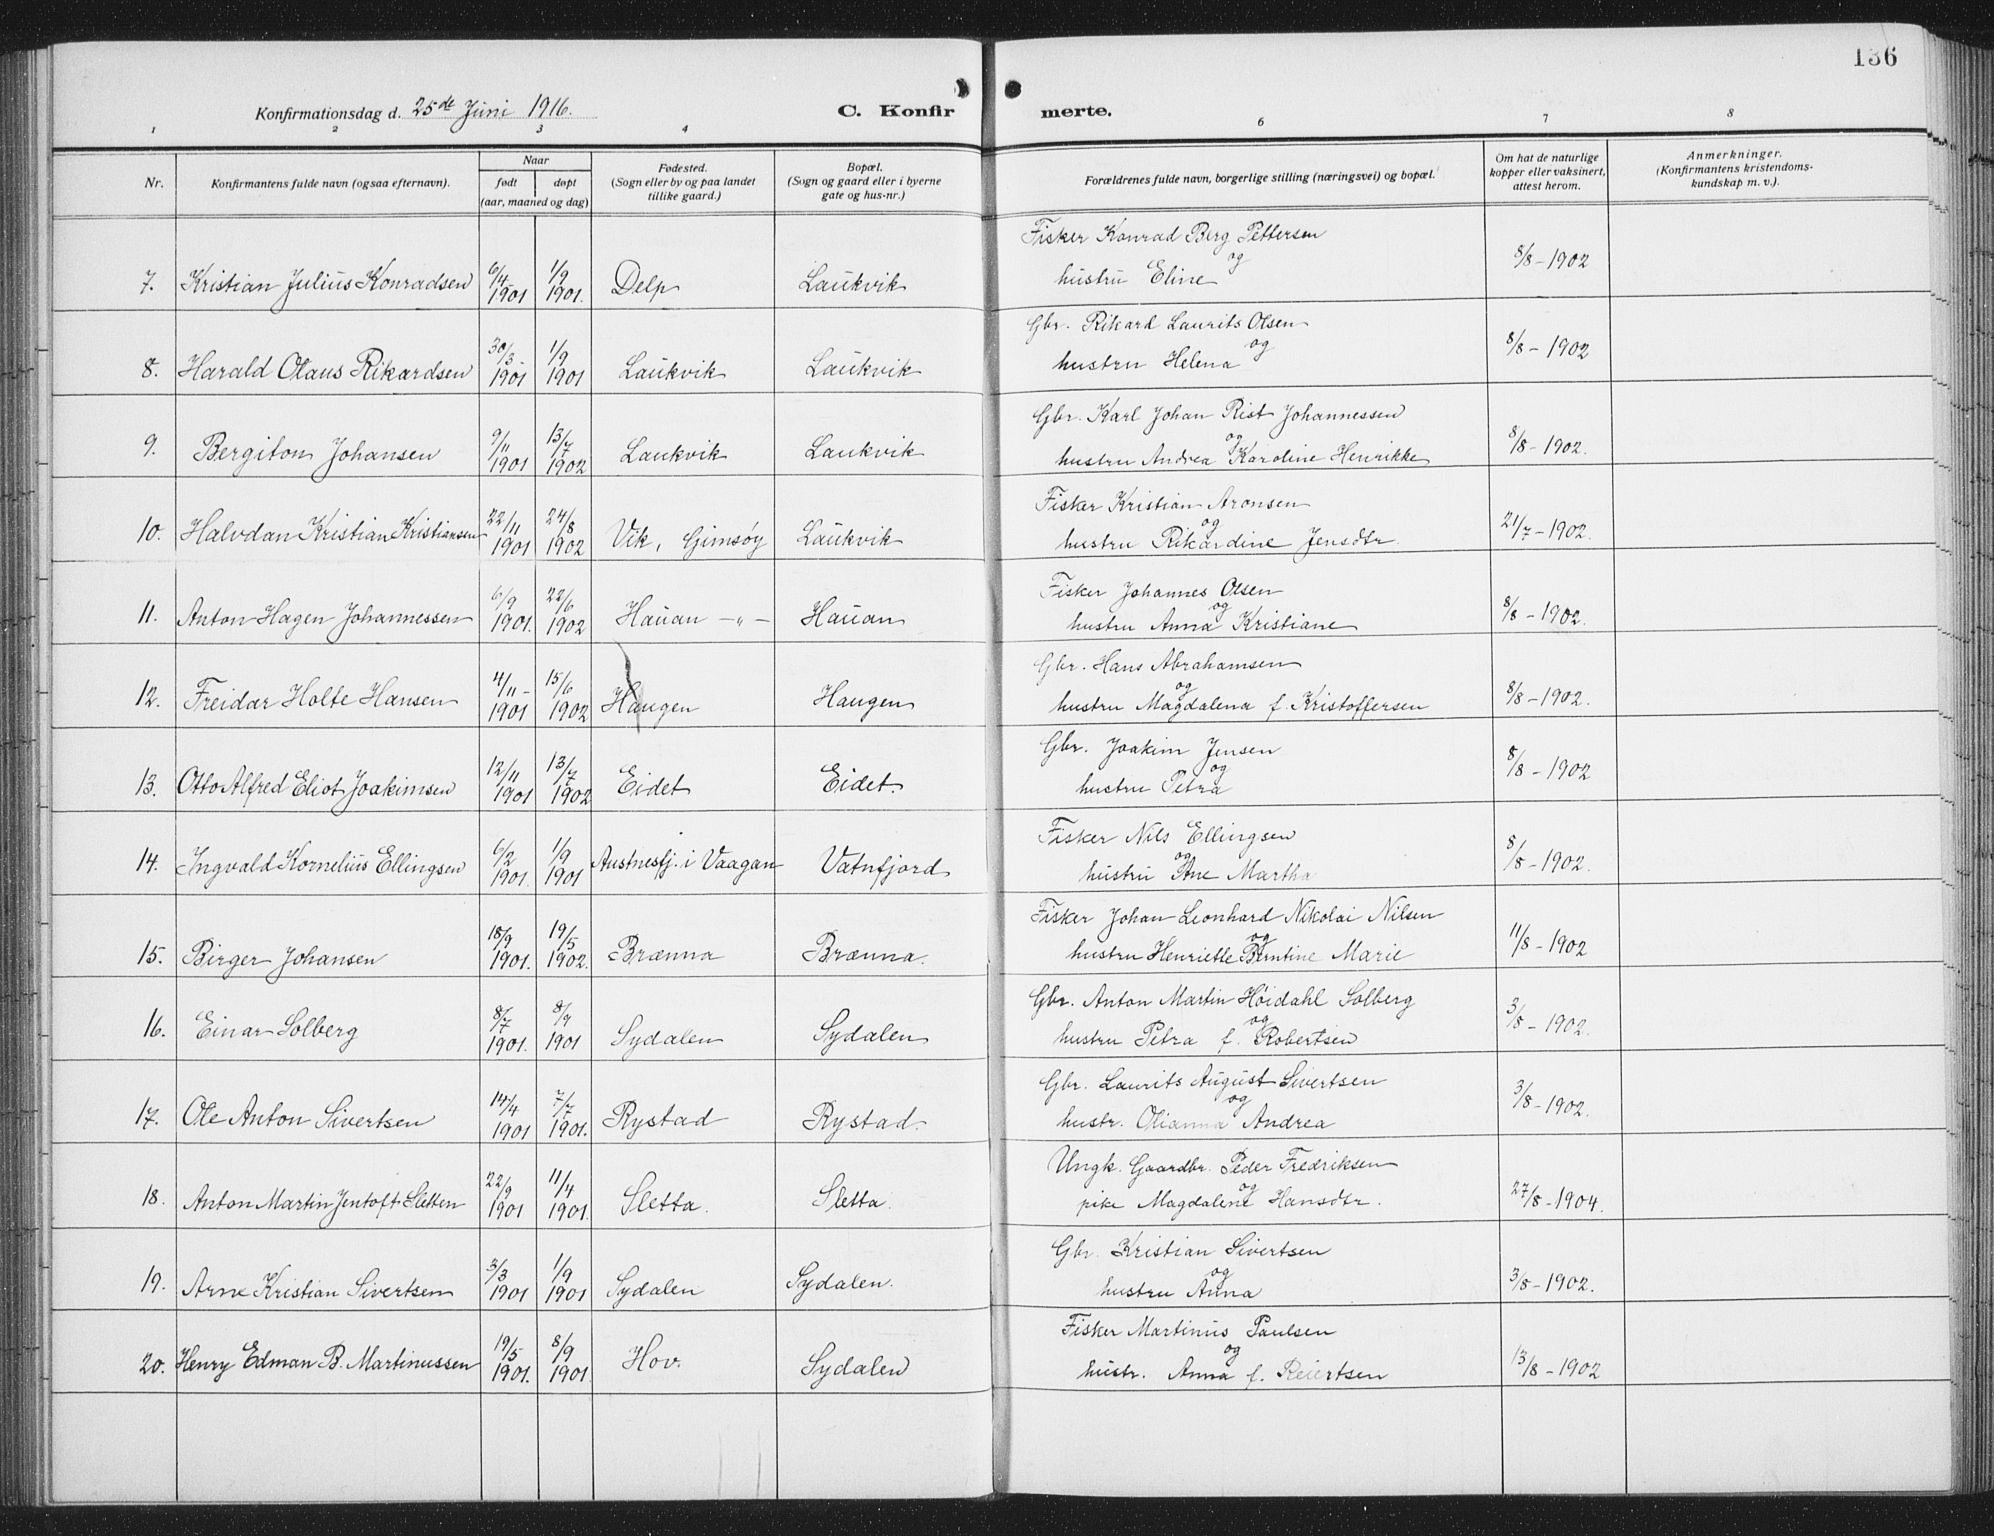 136
Konfirmationsdag d. 25de Juni 1916.
C. Konfirmerte.
1 2 3 4 6 7 8
Nr.
Konfirmantens fulde navn (ogsaa efternavn).
Naar
født døpt
(aar, maaned og dag)
Fødested.
(Sogn eller by og paa landet
tillike gaard.)
Bopæl.
(Sogn og gaard eller i byerne
gate og hus-nr.)
Forældrenes fulde navn, borgerlige stilling (næringsvei) og bopæl.
Om hat de naturlige
kopper eller vaksinert,
attest herom.
Anmerkninger.
(Konfirmantens kristendoms-
kundskap m. v.).
Fisker Konrad Berg Pettersen
og
7. Kristian Julius Konradsen 6/4 1901 1/9 1901. Delp Laukvik hustru Eline 8/8 - 1902
Gbr. Rikard Laurits Olsen
og
8. Harald Olaus Rikardsen 30/3 1901 1/9 1901 Laukvik Laukvik hustru Helena 8/8 - 1902
Gbr. Karl Johan Rist Johannessen
og
9. Bergiton Johansen 9/11 1901 13/7 1902 Laukvik Laukvik hustru Andrea Karoline Henrikke 8/8 - 1902.
Fisker Kristian Aronsen
og
10. Halvdan Kristian Kristiansen 22/11 1901 24/8 1902 Vik, Gimsøy Laukvik hustru Rikardine Jensdtr. 21/7 - 1902.
Fisker Johannes Olsen
og
11. Anton Hagen Johannessen 6/9 1901. 22/6 1902 Hauan - " - Hauan hustru Anna Kristiane 8/8 - 1902.
Gbr. Hans Abrahamsen
og
12. Freidar Holte Hansen 4/11 - 1901 15/6 1902 Haugen Haugen hustru Magdalena f. Kristoffersen 8/8 - 1902.
Gbr. Joakim Jensen
og
13. Otto Alfred Eliot Joakimsen 12/11 1901 13/7 1902 Eidet Eidet. hustru Petra 8/8 - 1902
Fisker Nils Ellingsen
og
14. Ingvald Kornelius Ellingsen 6/2 1901. 1/9 1901 Austnesfj. i Vaagan Vatnfjord hustru Ane Martha 8/8 - 1902.
Fisker Johan Leonhard Nikolai Nilsen
og
15. Birger Johansen 18/9 1901. 19/5 1902. Brænna Brænna. hustru Henriette Berntine Marie 11/8 - 1902
Gbr. Anton Martin Høidahl Solberg
og
16. Einar Solberg 8/7 1901. 8/9 1901 Sydalen Sydalen hustru Petra f. Robertsen 3/8 - 1902.
Gbr. Laurits August Sivertsen
og
17. Ole Anton Sivertsen 14/4 1901 7/7 1901. Rystad Rystad. hustr. Olianna Andrea 3/8 - 1902.
Ungk. Gaardbr. Peder Fredriksen
og
18. Anton Martin Jentoft Sletten 22/9 1901 11/4 1901. Sletta. Sletta. pike Magdalene Hansdtr. 27/8 - 1904.
Gbr. Kristian Sivertsen
og
19. Arne Kristian Sivertsen 3/3 1901 1/9 1901 Sydalen Sydalen. hustru Anna 3/8 - 1902.
Fisker Martinus Paulsen
og
20. Henry Edman B. Martinussen 19/5 1901. 8/9 1901. Hov. Sydalen hustr. Anna f. Reiertsen 13/8 - 1902